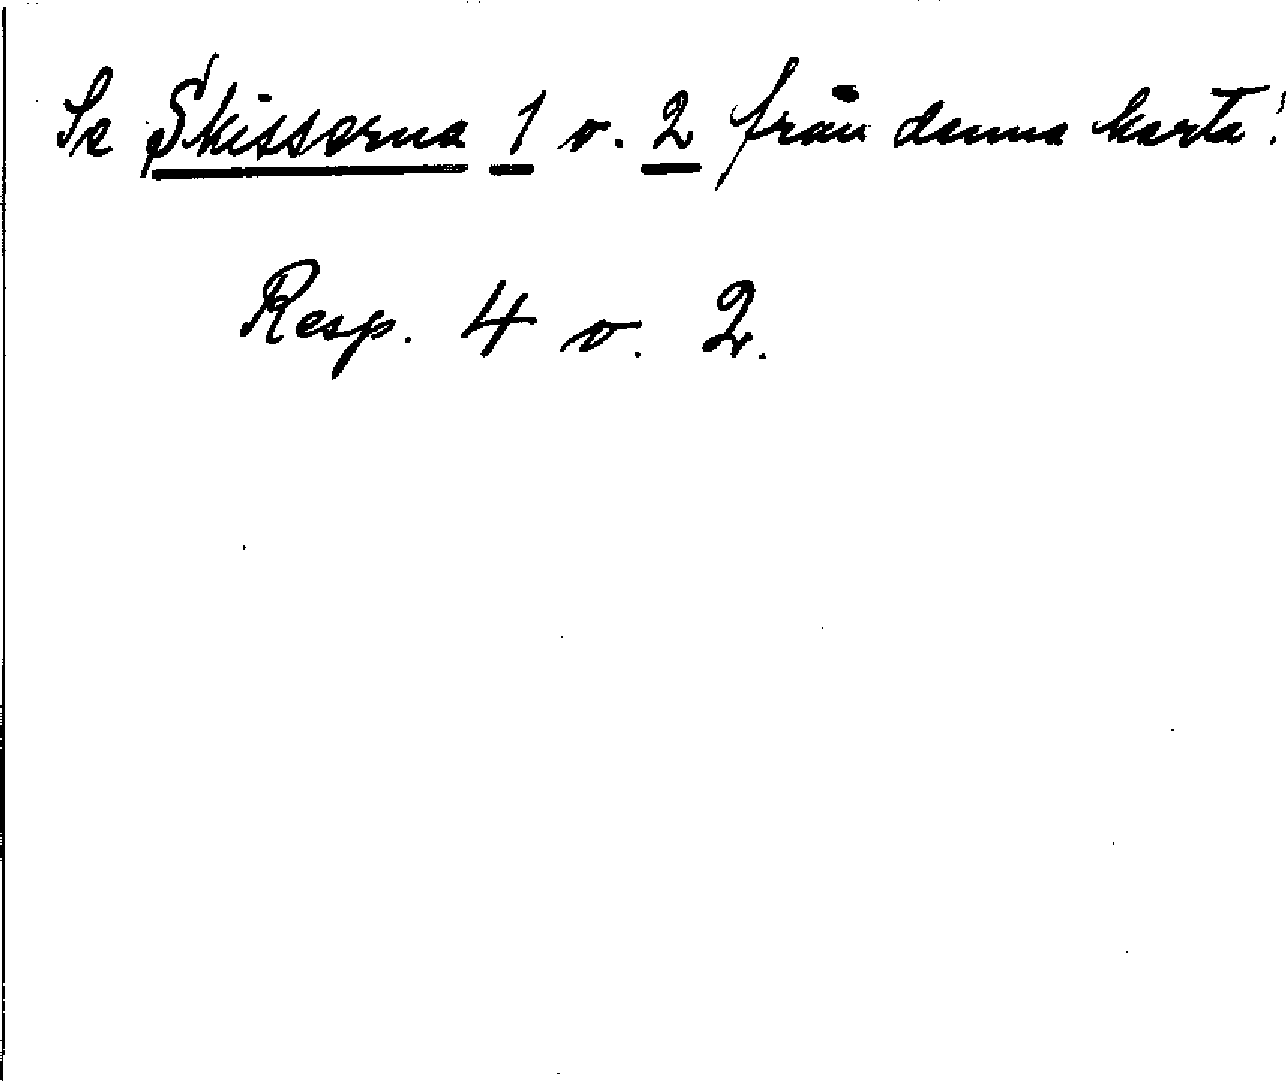 Se Skisserna 1 o. 2 från denna karta!
Resp. 4 o. 2.